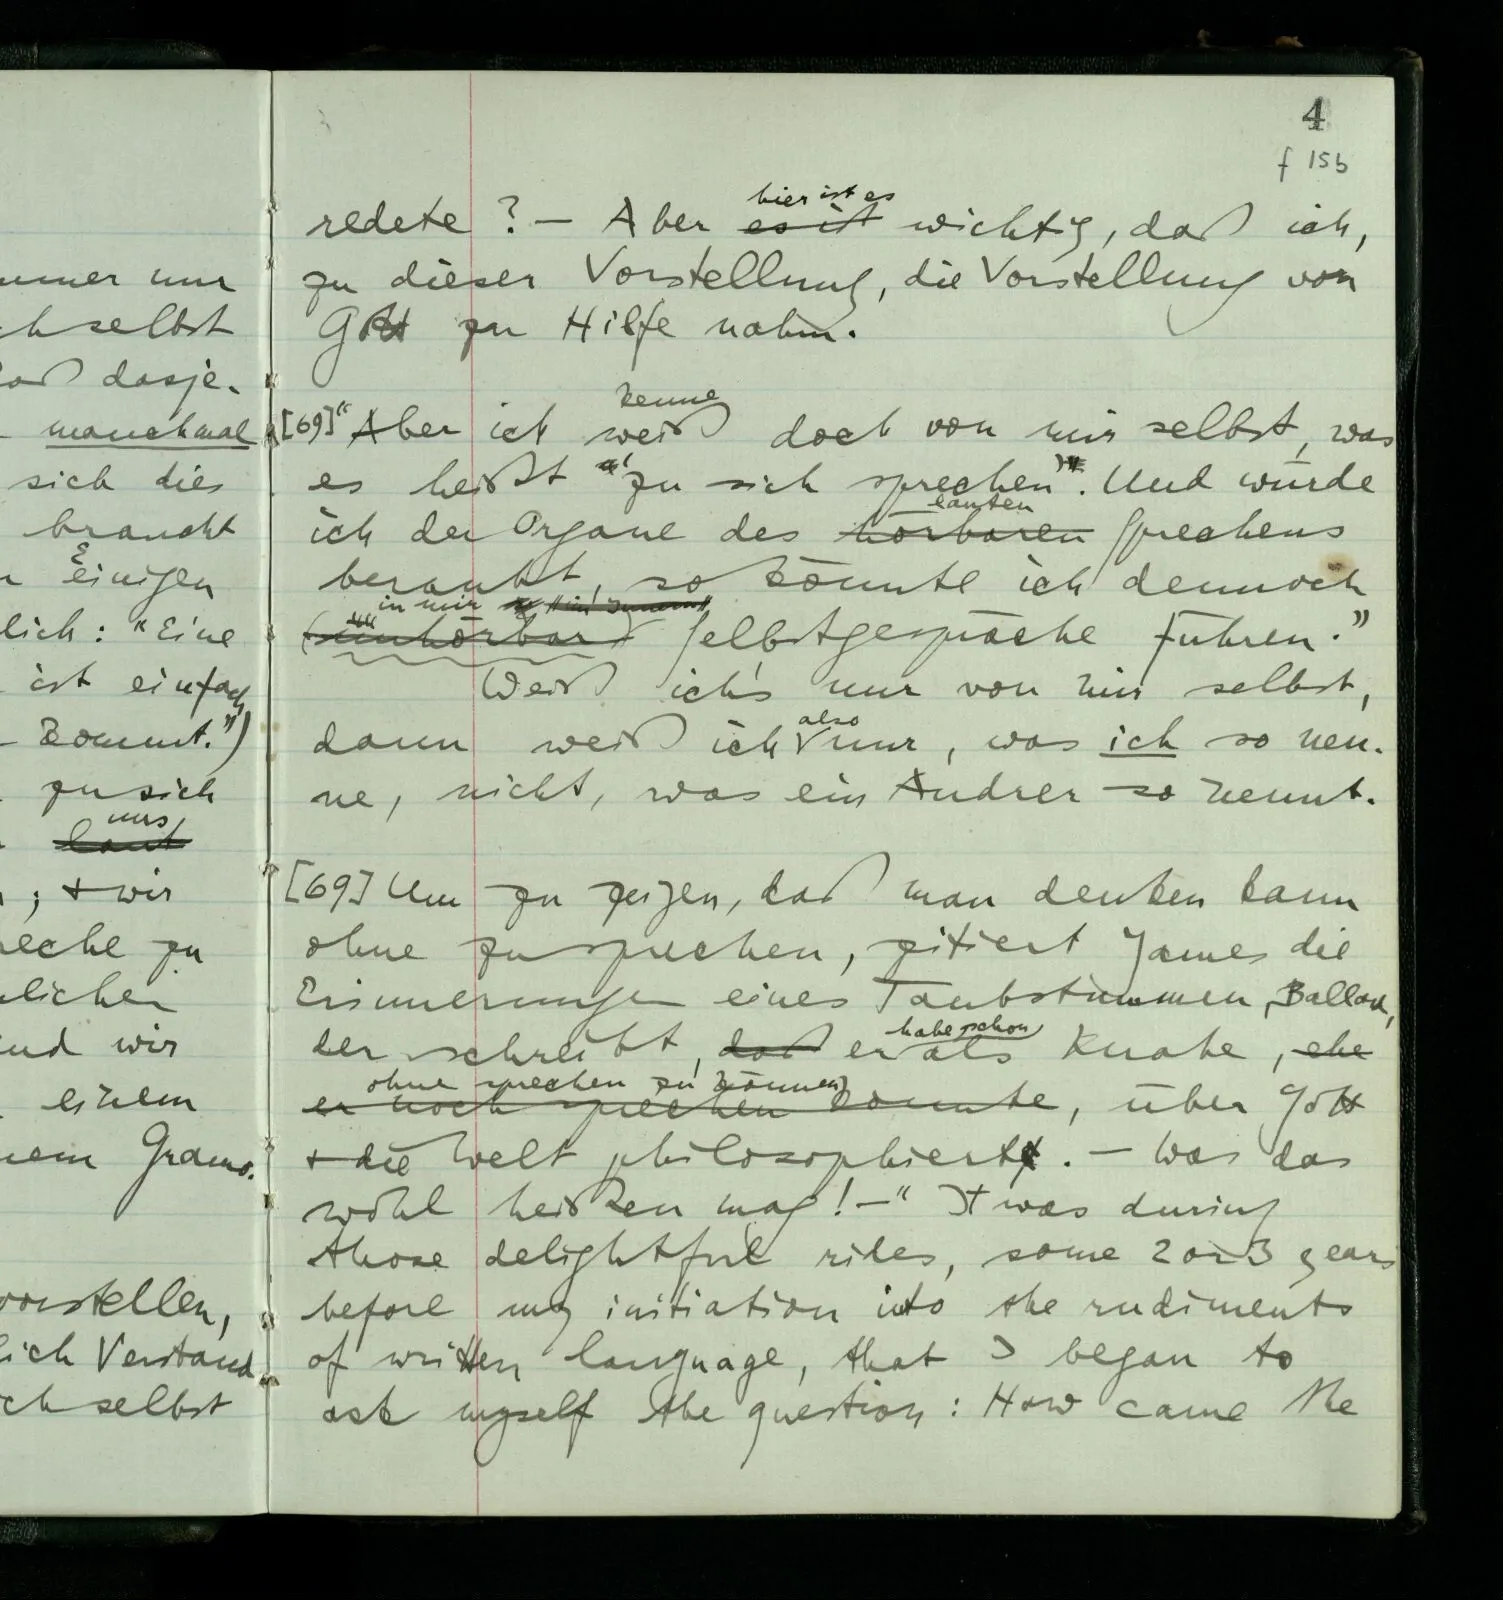 4
f 15b
hier ist es
redete ? – Aber es ist wichtig, daß ich,
zu dieser Vorstellung, die Vorstellung von
Gott zu Hilfe nahm.
kenne
[69] “Aber ich weiß doch von mir selbst, was
es heißt ‘zu sich sprechen’. Und würde
lauten
ich der Organe des hörbaren Sprechens
beraubt, so könnte ich dennoch
in mir “im Innern”
(unhörbar) Selbstgespräche führen.”
Weiß ich's nur von mir selbst,
also
dann weiß ich nur, was ich so nen-
ne, nicht, was ein Andrer so nennt.
[69] Um zu zeigen, daß man denken kann
ohne zu sprechen, zitiert James die
Erinnerungen eines Taubstummen, Ballard,
habe schon
der schreibt, daß er als Knabe, ehe
ohne sprechen zu können
er noch sprechen konnte, über Gott
+ die Welt philosophiert. – Was das
wohl heißen mag! – “It was during
those delightful rides, some 2 or 3 years
before my initiation into the rudiments
of written language, that I began to
ask myself the question: How came the
immer nur
ch selbst
daß dasje-
manchmal
sich dies
braucht
Einigen
lich: “Eine
ist einfach
kommt.”)
zu sich
uns
laut
; + wir
reche zu
licher
und wir
einem
nem Gramo-
vorstellen,
lich Verstand
ch selbst